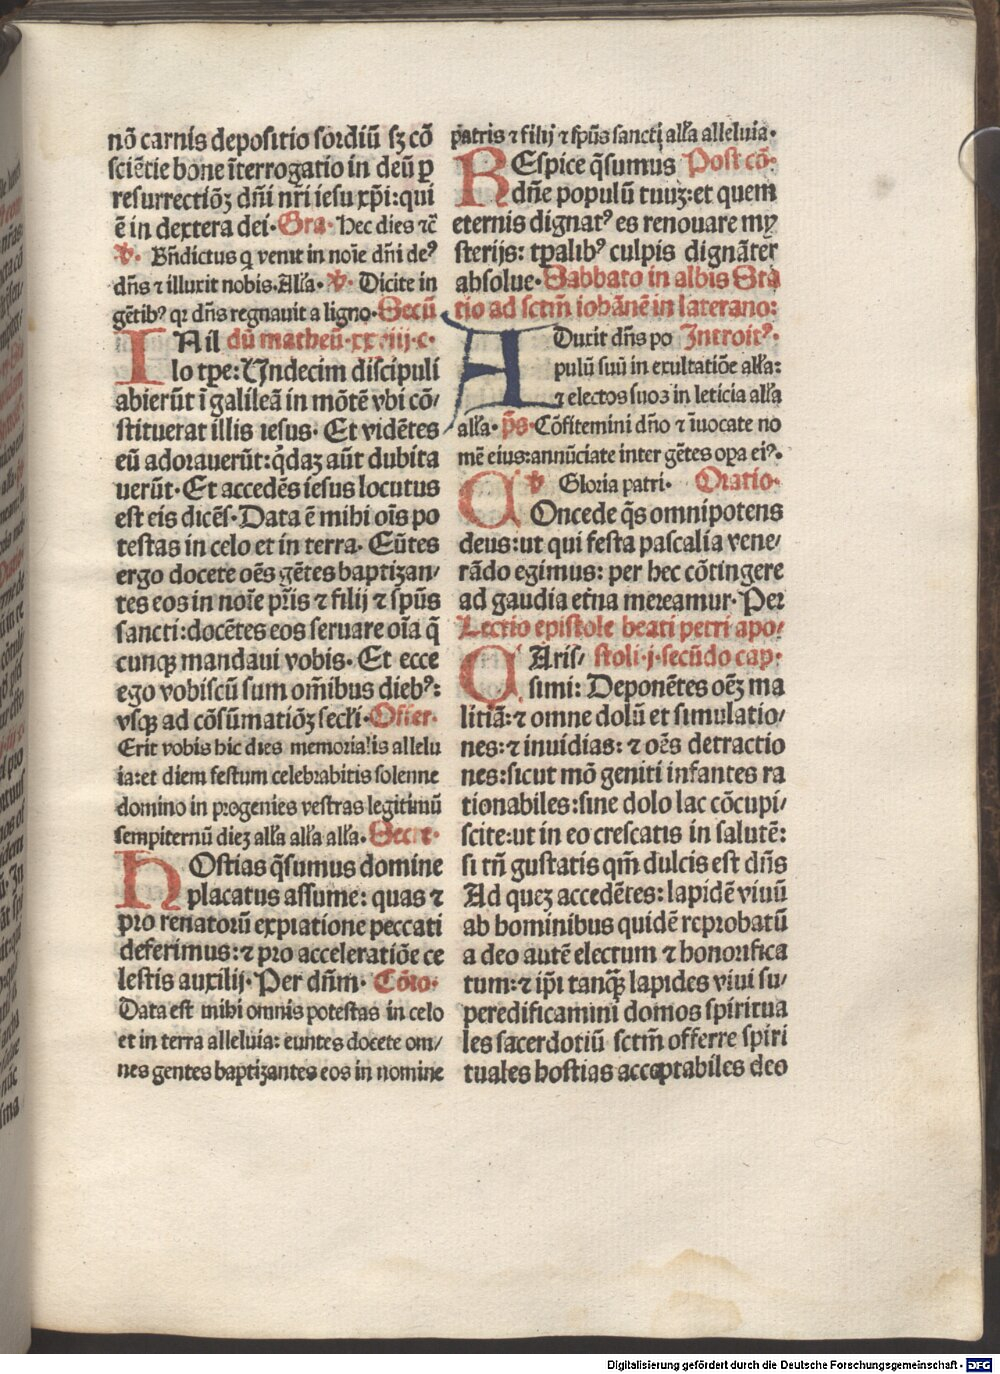 nō carnis depositio sordiū sꝫ cō
sciētie bone īterrogatio in deū ꝑ
resurrectiōꝫ dn̄i nr̄i iesu xp̄i: qui
ē in dextera dei. Gra. Hec dies ⁊c̄
℣. Bn̄dictus q venit in noīe dn̄i deꝰ
dn̄s ⁊ illuxit nobis. Alľa. ℣. Dicite in
gētibꝰ qꝛ dn̄s regnauit a ligno. Secū
IN ill dū matheū. xxviij. c.
lo tꝑe: Undecim discipuli
abierūt ī galileā in mōtē vbi cō/
stituerat illis iesus. Et vidētes
eū adorauerūt: q̄daꝫ aūt dubita
uerūt. Et accedēs iesus locutus
est eis dicēs. Data ē mihi oīs po
testas in celo et in terra. Eūtes
ergo docete oēs gētes baptizan/
tes eos in noīe pr̄is ⁊ filij ⁊ sp̄us
sancti: docētes eos seruare oīa q̄
cunqꝫ mandaui vobis. Et ecce
ego vobiscū sum om̄ibus diebꝰ:
vsqꝫ ad cōsūmatiōꝫ secľi. Offer.
Erit vobis hic dies memorialis allelu
ia: et diem festum celebrabitis solenne
domino in progenies vestras legitimū
sempiternū dieꝫ alľa alľa alľa. Secre.
HOstias q̄sumus domine
placatus assume: quas ⁊
pro renatorū expiatione peccati
deferimus: ⁊ pro acceleratiōe ce
lestis auxilij. Per dn̄m. Cōio.
Data est mihi omnis potestas in celo
et in terra alleluia: euntes docete om/
nes gentes baptizantes eos in nomine
patris ⁊ filij ⁊ sp̄us sancti alľa alleluia.
REspice q̄sumus Post cō.
dn̄e populū tuuꝫ: et quem
eternis dignatꝰ es renouare my
sterijs: tꝑalibꝰ culpis dignāter
absolue. Sabbato in albis Sta
tio ad sctm̄ iohānē in laterano:
ADuxit dn̄s po Introitꝰ.
pulū suū in exultatiōe alľa:
⁊ electos suos in leticia alľa
alľa. p̄s. Cōfitemini dn̄o ⁊ īuocate no
mē eius: annūciate inter gētes oꝑa eiꝰ.
℣ Gloria patri. Oratio.
COncede q̄s omnipotens
deus: ut qui festa pascalia vene/
rādo egimus: per hec cōtingere
ad gaudia etn̄a mereamur. Per
Lectio epistole beati petri apo/
CAris/ stoli. j. secūdo cap.
simi: Deponētes oēꝫ ma
litiā: ⁊ omne dolū et simulatio/
nes: ⁊ inuidias: ⁊ oēs detractio
nes: sicut mō geniti infantes ra
tionabiles: sine dolo lac cōcupi/
scite: ut in eo crescatis in salutē:
si tn̄ gustatis qm̄ dulcis est dn̄s
Ad queꝫ accedētes: lapidē viuū
ab hominibus quidē reprobatū
a deo autē electum ⁊ honorifica
tum: ⁊ ip̄i tanqꝫ lapides viui su/
peredificamini domos spiritua
les sacerdotiū sctm̄ offerre spiri
tuales hostias acceptabiles deo
Digitalisierung gefördert durch die Deutsche Forschungsgemeinschaft - DFG